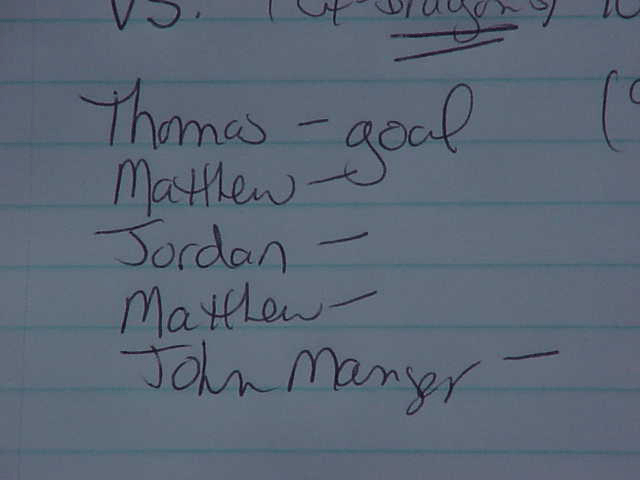 vs. Dragons)
Thomas - goal
Matthew -
Jordan -
Matthew -
John Manger -